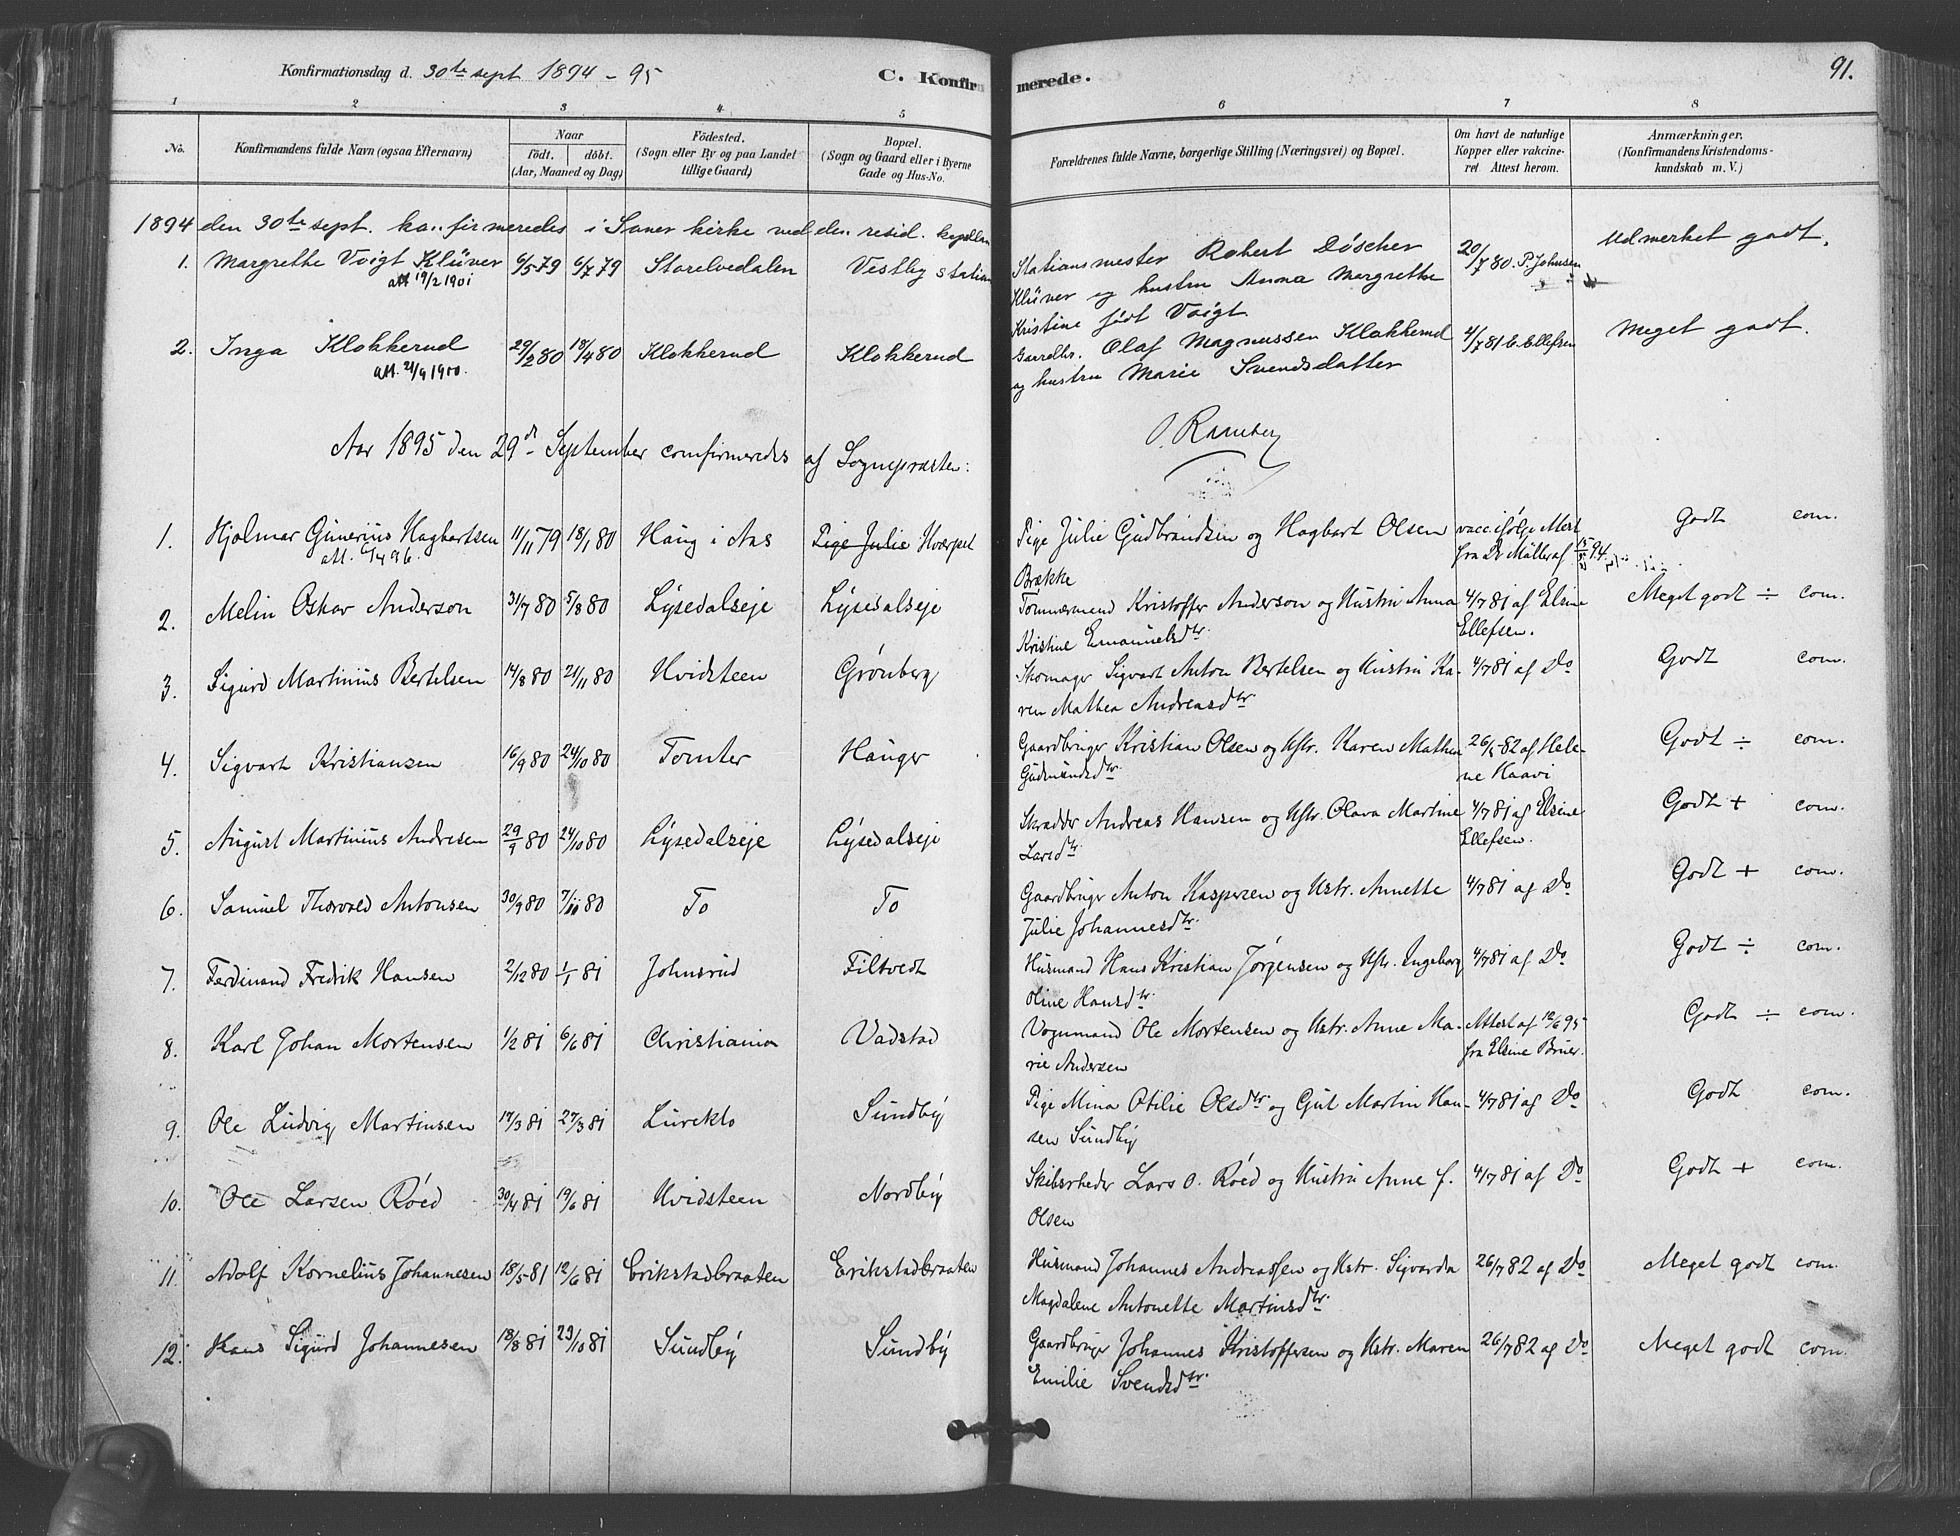 Konfirmationsdag d. 30te sept 1894 - 95
C. Konfirmerede.
91.
1 2 3 4 5 6 7 8
No. Konfirmandens fulde Navn (ogsaa Efternavn) Naar født. døbt. (Aar, Maaned og Dag) Fødested. (Sogn eller By og paa Landet tillige Gaard) Bopæl. (Sogn og Gaard eller i Byerne Gade og Hus-No. Forældrenes fulde Navne, borgerlige Stilling (Næringsvei) og Bopæl. Om havt de naturlige Kopper eller vakcineret. Attest herom. Anmærkninger. (Konfirmandens Kristendomskundskab m. V.)
1894 den 30te sept. konfirmeredes i Soner kirke ved den resid. kapellan
1. Margrethe Voigt Klüver 6/5 79 6/7 79 Storelvedalen Vestby station Stationsmester Robert Döscher 20/7 80. P. Johnsen Udmerket godt.
att 19/2 1901 Klüver og hustru Anna Margrethe
Kristine født Voigt.
2. Inga Klokkerud 29/2 80 18/4 80 Klokkerud Klokkerud Gaardbr. Olaf Magnussen Klokkerud 4/7 81 E. Ellefsen Meget godt.
att. 21/9 1900. og hustru Marie Svendsdatter
O. Ramberg
Aar 1895 den 29de September comfirmeredes af Sognepræsten:
1. Hjalmar Gunerius Hagbartsen 11/11 79 18/1 80 Haug i Aas Pige Julie Hværpel Pige Julie Gudbrandsen og Hagbart Olsen vacc. ifølge Attest Godt com.
att. 96. Brække fra Dr Møller af 15/5 94.
2. Melin Oskar Anderson 31/7 80 5/8 80 Lysedalseje Lysedalseje Tømmermand Kristoffer Anderson og Hustru Anna 4/7 81 af Elsine Meget godt ÷ com.
Kristine Emanuelsdtr. Ellefsen.
3. Sigurd Martinius Bertelsen 14/8 80 21/11 80 Hvidsteen Grønberg Skomager Sigvart Anton Bertelsen og Hustru Ka- 4/7 81 af Do Godt com.
ren Mathea Andreasdtr
4. Sigvart Kristiansen 16/9 80 24/10 80 Tomter Hauger Gaardbruger Kristian Olsen og Hstr. Karen Mathea 26/ 82 af Hele- Godt ÷ com.
Gudmundsdtr. ne Haavi
5. August Martinius Andresen 29/9 80 24/10 80 Lysedalseje Lysedalseje Skrædder Andreas Hansen og Hstr. Olava Martine 4/7 81 af Elsine Godt + com.
Larsdtr. Ellefsen.
6. Samuel Thorvald Antonsen 30/9 80 7/11 80 To To Gaardbruger Anton Kaspersen og Hstr. Annette 4/7 81 af Do Godt + com.
Julie Johannesdtr.
7. Ferdinand Fredrik Hansen 2/12 80 1/1 81 Johnsrud Filtvedt Husmand Hans Kristian Jørgensen og Hstr. Ingeborg 4/7 81 af Do Godt ÷ com.
Oline Hansdtr.
8. Karl Johan Mortensen 1/2 81 6/6 81 Christiania Vadstad Vognmand Ole Mortensen og Hstr. Anne Ma- Attest af 12/6 95 Godt ÷ com.
rie Andersen fra Elsine Bruer.
9. Ole Ludvig Martinsen 17/3 81 27/3 81 Lureklo Sundby Pige Mina Otilie Olsdtr og Gul Martin Han- 4/7 81 af Do Godt com.
sen Sundby
10. Ole Larsen Røed 30/4 81 19/6 81 Hvidsteen Nordby Skibsrheder Lars O. Røed og Hustru Anne f. 4/7 81 af Do Godt + com.
Olsen
11. Adolf Kornelius Johannesen 18/5 81 12/6 81 Erikstadbraaten Erikstadbraaten Husmand Johannes Andreassen og Hstr. Sigvarda 26/7 82 af Do Meget godt com.
Magdalene Antonette Martinsdtr.
12. Hans Sigurd Johannesen 18/8 81 23/10 81 Sundby Sundby Gaardbruger Johannes Kristoffersen og Hstr. Maren 26/7 82 af Do Meget godt com.
Emilie Svendsdtr.